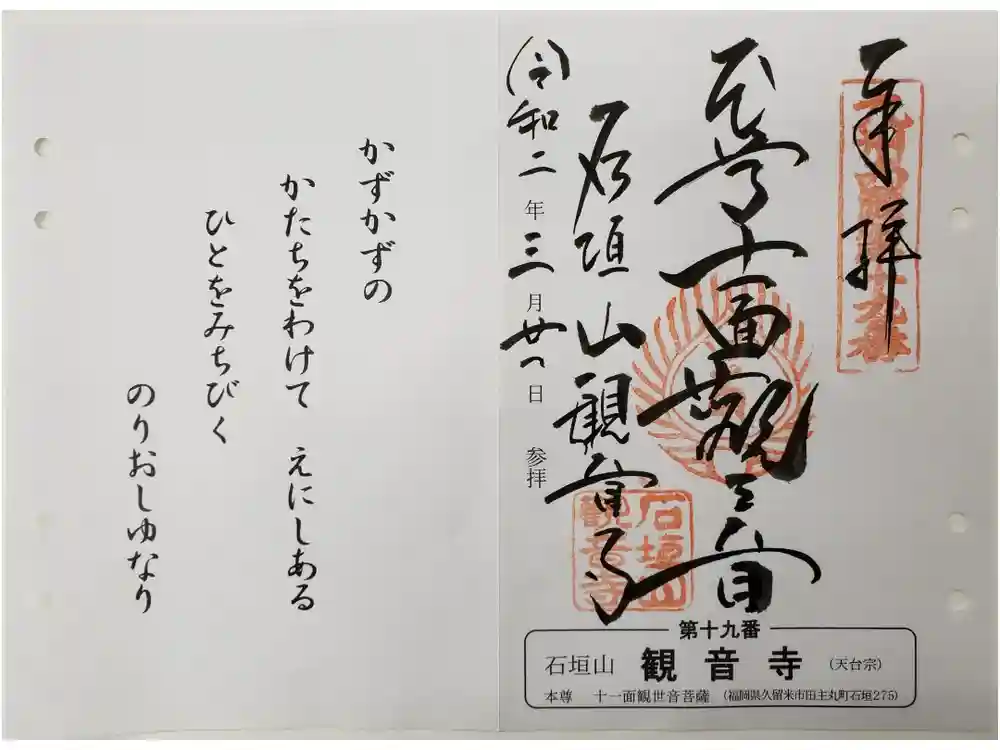 奉拝
本尊十一面観世音
石垣山観音寺
(令)和二年三月廿一日 参拝
九州四十九院第十九番
石垣山
観音寺
第十九番
石垣山 観音寺 (天台宗)
本尊 十一面観世音菩薩 (福岡県久留米市田主丸町石垣275)
かずかずの
かたちをわけて えにしある
ひとをみちびく
のりおしゆなり